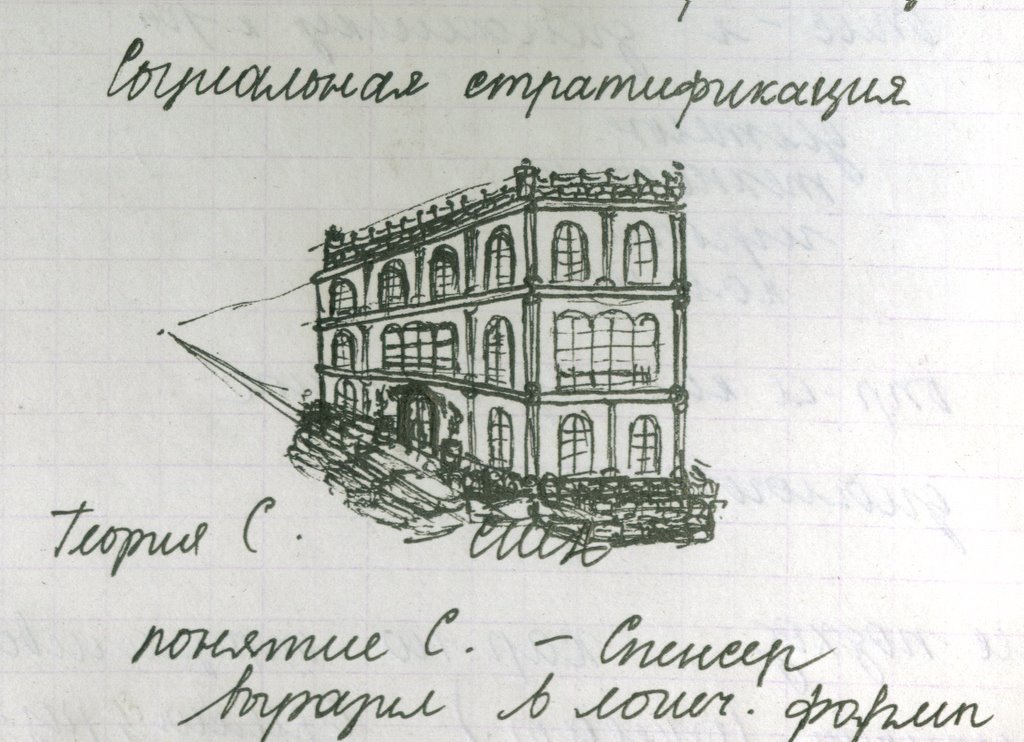 Социальная стратификация
Теория С.
понятие С. – Спенсер
выразил в логич. форме